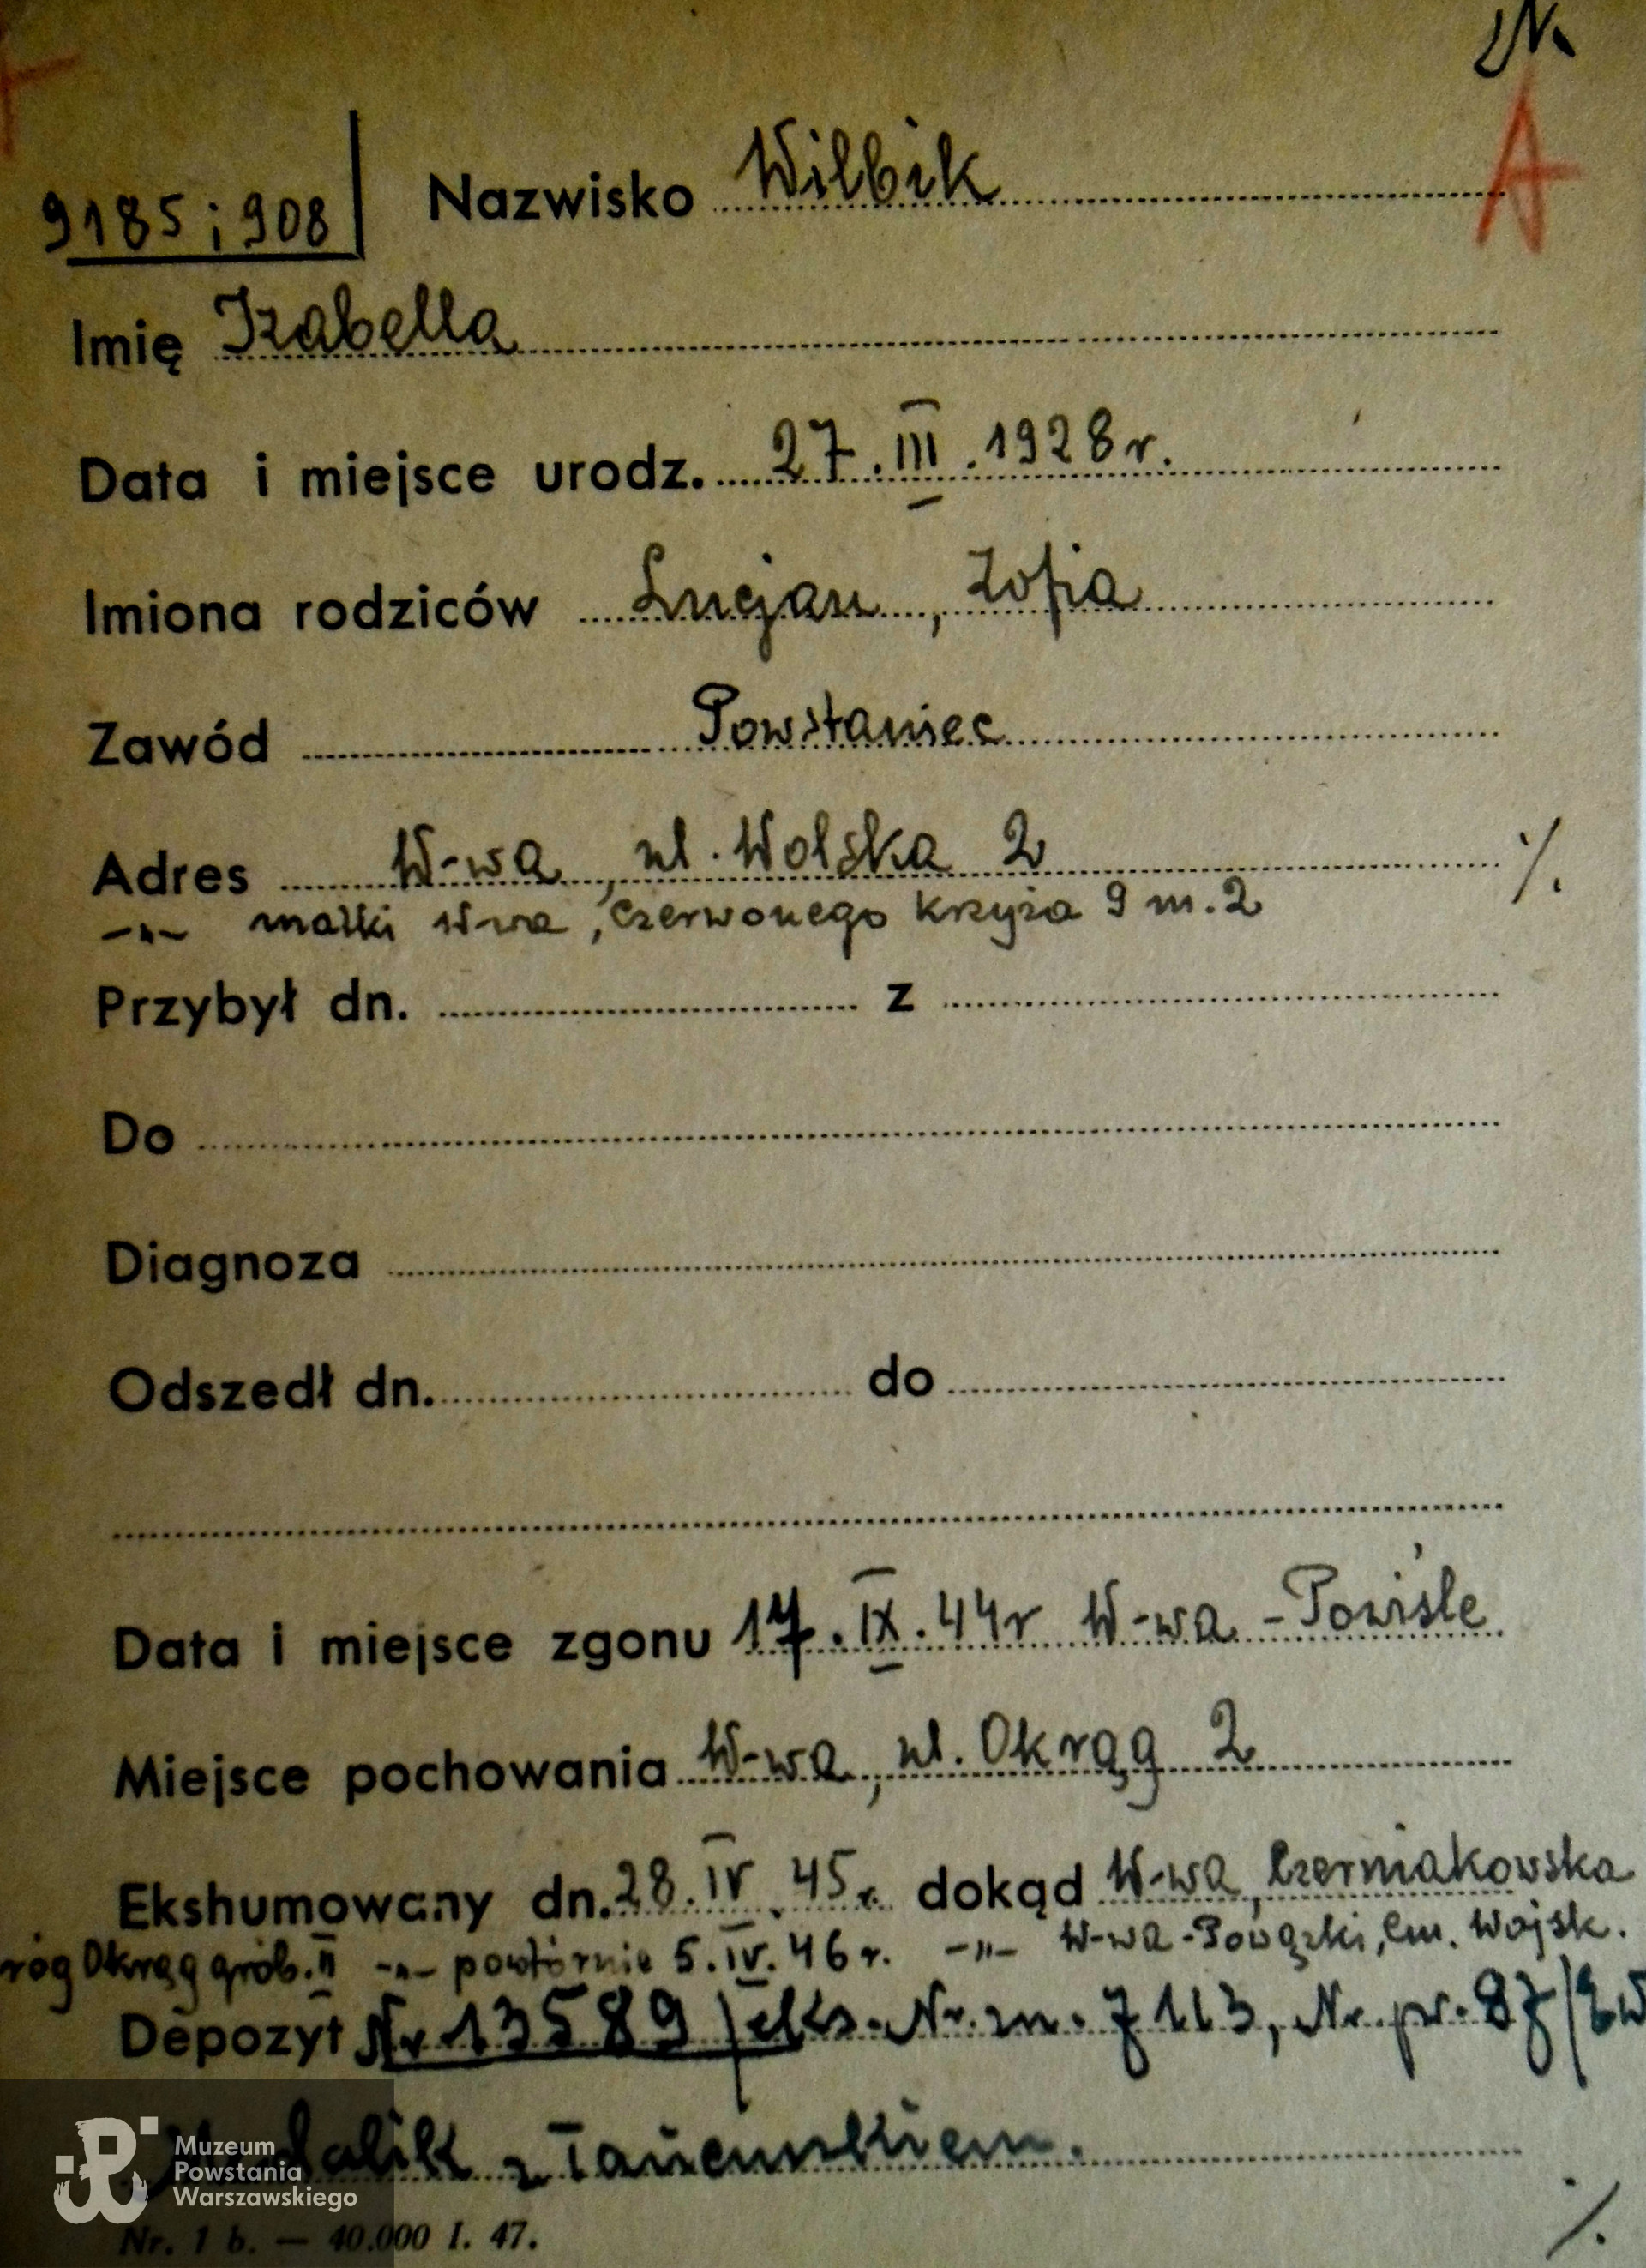 9185 i 908
Nazwisko Wilbik
A
Imię Izabella
Data i miejsce urodz. 27.III.1928 r.
Imiona rodziców Lucjan, Zofia
Zawód Powstaniec
Adres W-wa, ul. Wolska 2 ·/.
-"- matki W-wa, Czerwonego Krzyża 9 m. 2
Przybył dn. z
Do
Diagnoza
Odszedł dn. do
Data i miejsce zgonu 17.IX.44r W-wa - Powiśle
Miejsce pochowania W-wa, ul. Okrąg 2
Ekshumowany dn. 28.IV.45r. dokąd W-wa, Czerniakowska
róg Okrąg grób. II -"- powtórnie 5.IV.46 r. -"- W-wa - Powązki, Cm. Wojsk.
Depozyt Nr 13589/eks. Nr. m. 7113, Nr. pr. 87/
z łańcuszkiem.
Muzeum
Powstania
Warszawskiego
Nr. 1 b. — 40.000 I. 47.
·/.